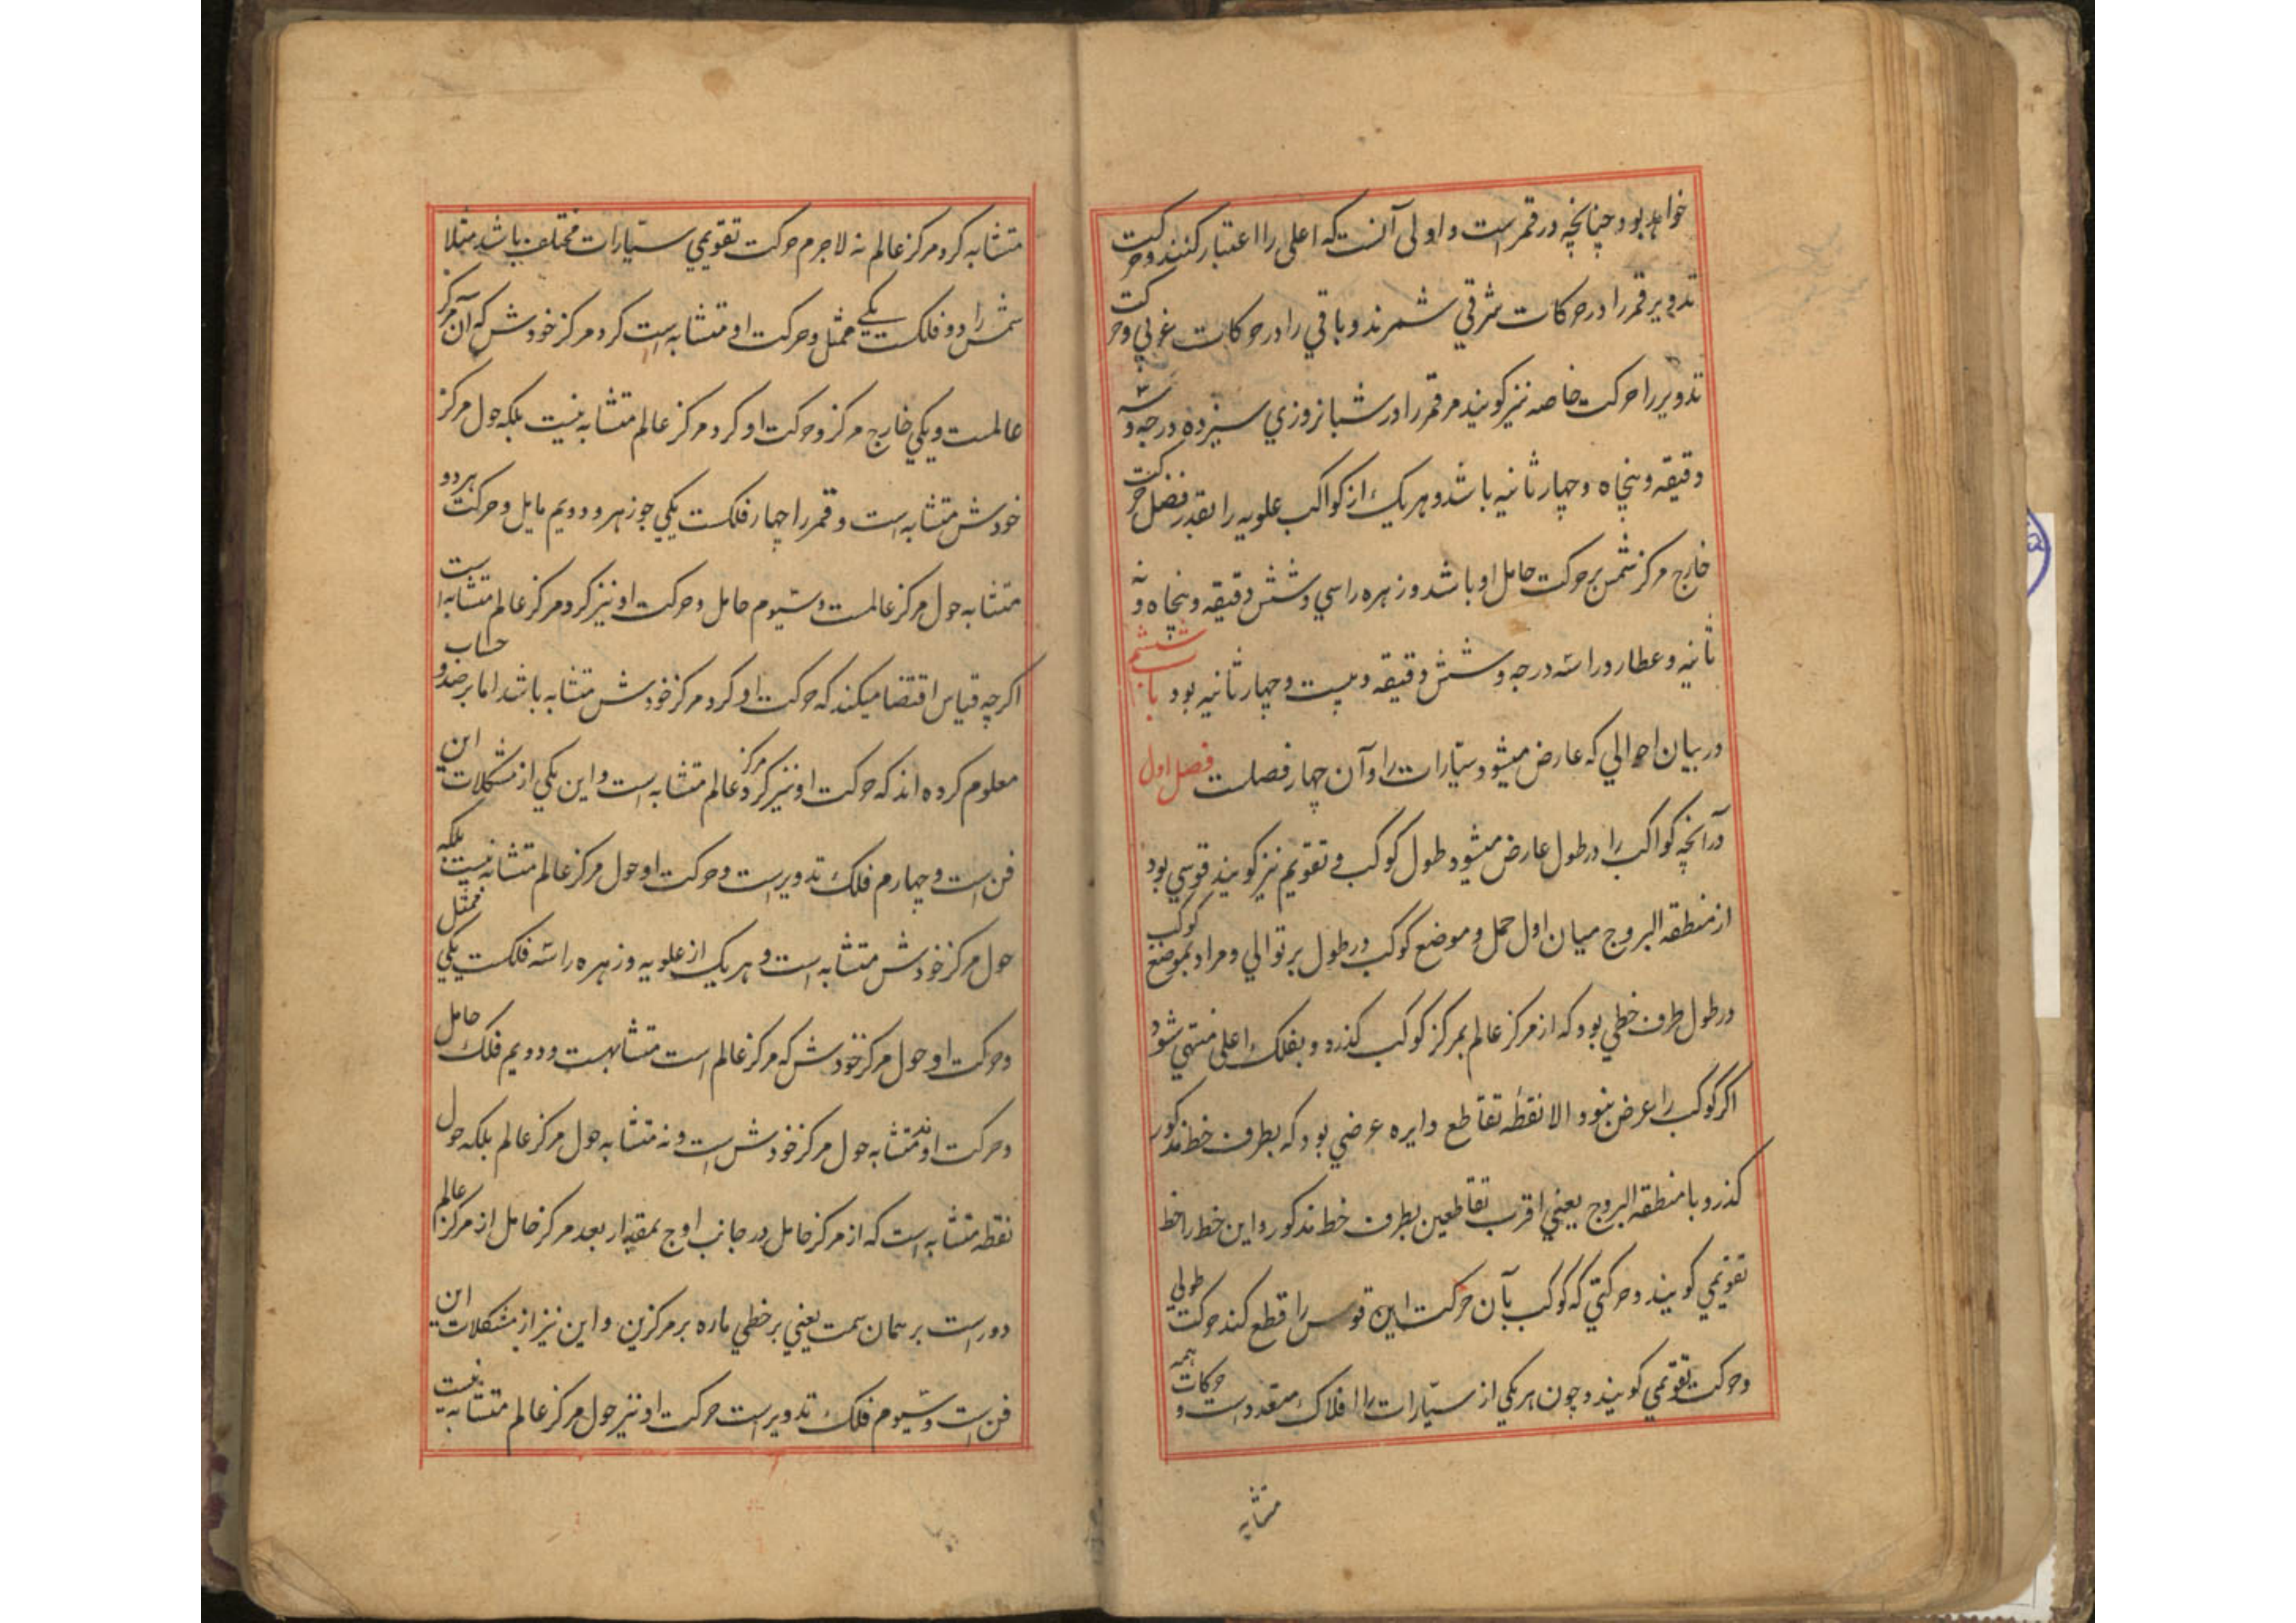 خواهد بود چنانچه در قمر است و اولی آنست که اعلی را اعتبار کنند و حرکت
تدویر قمر را در حرکات شرقی شمرند و باقی را در حرکات غربی و حرکت
تدویر را حرکت خاصه نیز کویند مر قمر را در شبانروزی سیزده درجه و سه
دقیقه و پنجاه و چهار ثانیه باشد و هر یک از کواکب علویه را بقدر فضل حرکت
خارج مرکز شمس بر حرکت حامل او باشد و زهره را سی و شش دقیقه و پنجاه و نه
ثانیه و عطارد را سه درجه و شش دقیقه و بیست و چهار ثانیه بود باب ششم
در بیان احوالی که عارض میشود سیارات را و آن چهار فصلست فصل اول
در آنچه کواکب را در طول عارض میشود طول کوکب و تقویم نیز کویند قوسی بود
از منطقه البروج میان اول حمل و موضع کوکب در طول بر توالی و مراد بموضع کوکب
در طول طرف خطی بود که از مرکز عالم بمرکز کوکب کذرد و بفلک اعلی منتهی شود
اکر کوکب را عرض نبود و الا نقطه تقاطع دایره عرضی بود که بطرف خط مذکور
کذرد با منطقه البروج یعنی اقرب تقاطعین بطرف خط مذکور و این خط را خط
تقویمی کویند و حرکتی که کوکب بآن حرکت این قوس را قطع کند حرکت طولی
و حرکت تقویمی کویند و چون هر یکی از سیارات را افلاک متعدد است و همه حرکات
متشابه
متشابه کرد مرکز عالم نه لاجرم حرکت تقویمی سیارات مختلف باشد مثلا
شمس را دو فلکست یکی ممثل و حرکت او متشابه است کرد مرکز خودش که آن مرکز
عالمست و یکی خارج مرکز و حرکت او کرد مرکز عالم متشابه نیست بلکه حول مرکز
خودش متشابه است و قمر را چهار فلکست یکی جوزهر و دویم مایل و حرکت هر دو
متشابه حول مرکز عالمست و سیوم حامل و حرکت او نیز کرد مرکز عالم متشابه است
اکرچه قیاس اقتضا میکند که حرکت او کرد مرکز خودش متشابه باشد اما برصد و حساب
معلوم کرده اند که حرکت او نیز کرد مرکز عالم متشابه است و این یکی از مشکلات این
فن است و چهارم فلک تدویر است و حرکت او حول مرکز عالم متشابه نیست بلکه
حول مرکز خودش متشابه است و هر یک از علویه و زهره را سه فلکست یکی ممثل
و حرکت او حول مرکز خودش که مرکز عالم است متشابهست و دویم فلک حامل
و حرکت او نه متشابه حول مرکز خودش است و نه متشابه حول مرکز عالم بلکه حول
نقطه متشابه است که از مرکز حامل در جانب اوج بمقدار بعد مرکز حامل از مرکز عالم
دور است بر همان سمت یعنی بر خطی ماره بر مرکزین و این نیز از مشکلات این
فن است و سیوم فلک تدویر است حرکت او نیز حول مرکز عالم متشابه نیست